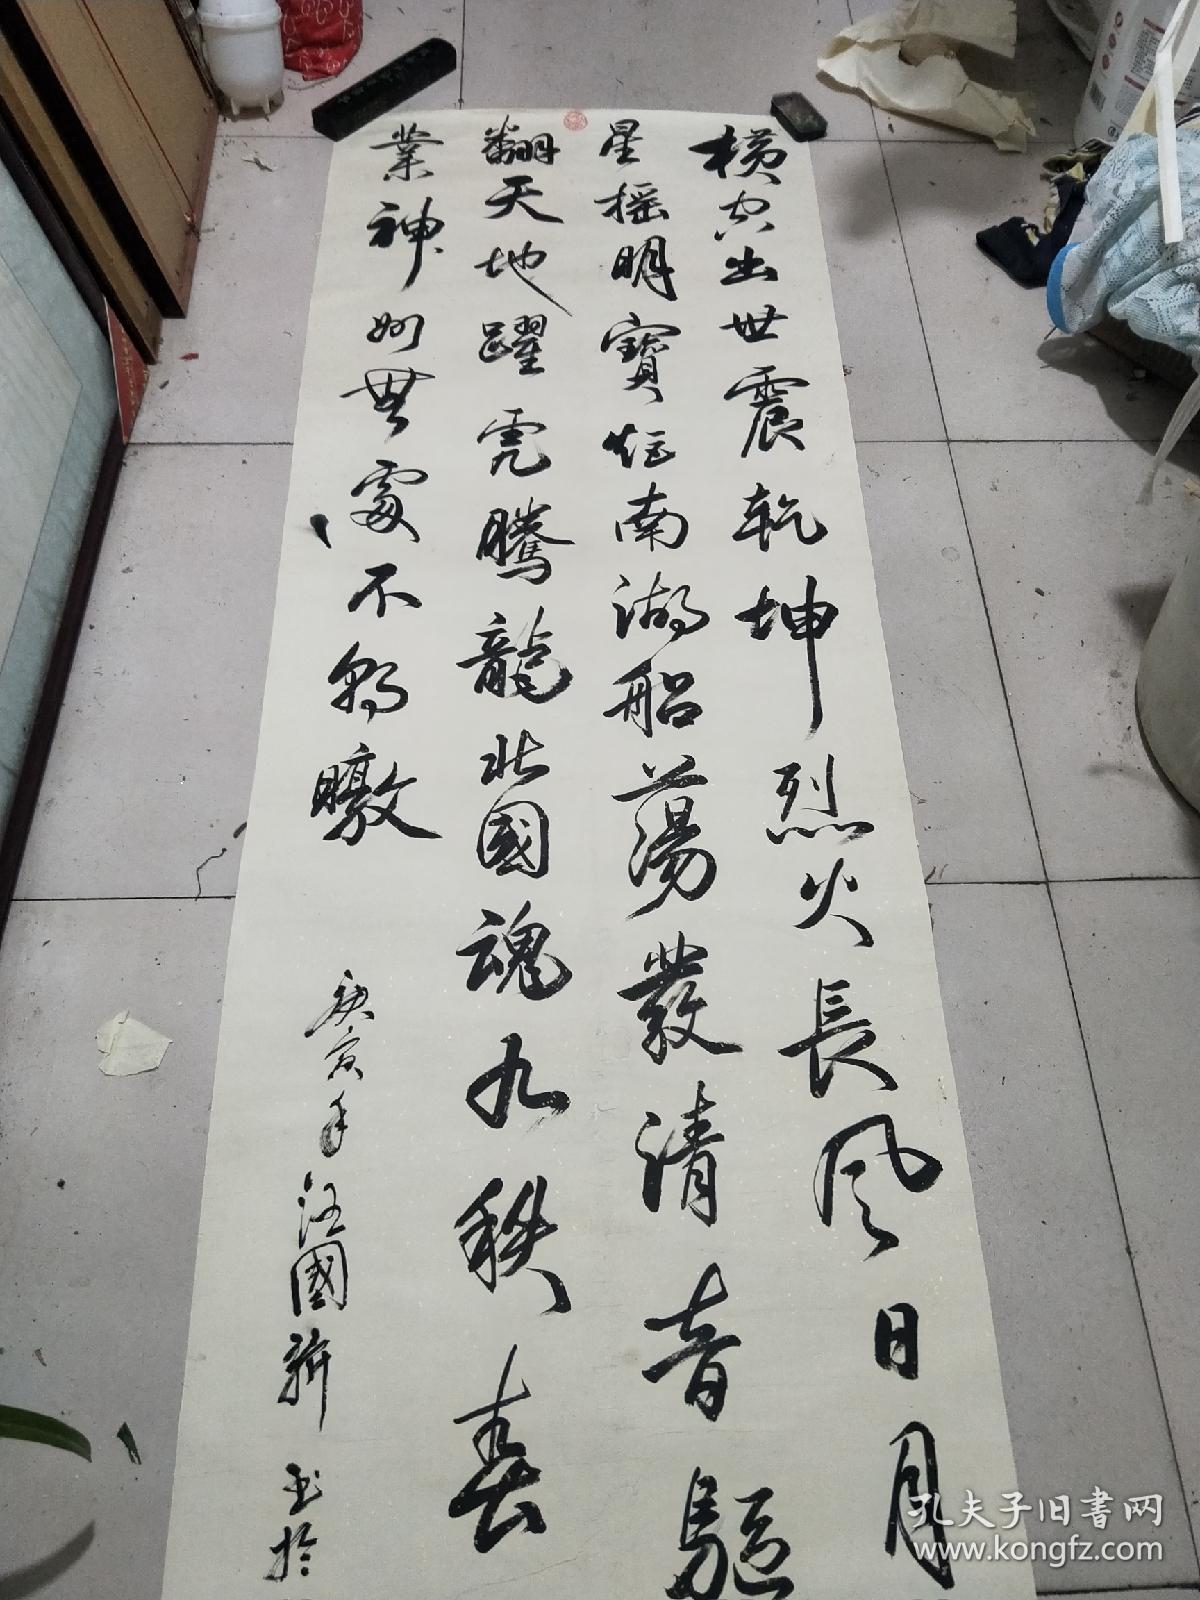 横空出世震乾坤烈火長風日月
星摇明寶炬南湖船蕩叢清音驅
翻天地躍虎騰龍北國魂九秩春
業神州無處不朝暾
庚寅年汪國新書於
孔夫子旧書网
www.kongfz.com